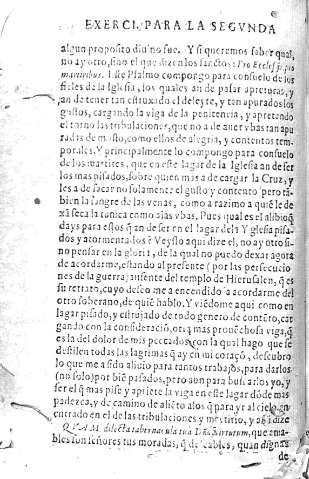 EXERCI. PARA LA SEGVNDA
algun proposito diuino fue. Y si queremos saber qual,
no ay otro, sino el que dizen los sanctos: Pro Eccles
martiribus. Este Psalmo compongo para consuelo de los
fieles de la Iglesia, los quales an de pasar apreturas, y
an de tener tan estruxado el deleyte, y tan apurados los
gustos, cargando la viga de la penitencia, y apretando
el torno las tribulaciones, que no a de auer vbas tan apu
radas de mosto, como ellos de alegria, y contentos tem
porales. Y principalmente lo compongo para consuelo
de los martires, que en este lagar de la Iglesia an de ser
los mas pisados, sobre quien mas a de cargar la Cruz, y
les a de sacar no solamente el gusto y contento pero tā
bien la sangre de las venas, como a razimo a quiē le de
xā seca la tunica como a las vbas. Pues qual es el aliuio q̄
days para estos q̄ an de ser en el lagar dela Yglesia pisa
dos y atormentados? Veyslo aqui dize el, no ay otro si-
no pensar en la gloria, de la qual no puedo dexar agora
de acordarme, estando al presente (por las persecucio
nes de la guerra) ausente del templo de Hierusalen, q̄ es
su retrato, cuyo deseo me a encendido a acordarme del
otro soberano, de quiē hablo. Y viēdome aqui como en
lagar pisado, y estrujado de todo genero de contēto, car
gando con la consideraciō, otra mas prouechosa viga, q̄
es la del dolor de mis peccados, con la qual hago que se
destilen todas las lagrimas q̄ ay en mi coraçō, descubro
lo que me a sido aliuio para tantos trabajos, para darlos
(no solo) por biē pasados, pero aun para buscarlos yo, y
ser el q̄ mas pise y apriete la viga en este lagar dōde mas
padezca, y de camino de aliēto a los q̄ para yr al cielo, an
entrado en el de las tribulaciones y martirio, y asi dize
QVAM dilecta tabernacula tua Dñe virtutum, que ama-
bles son señores tus moradas, q̄ deseables, quan dignas
de